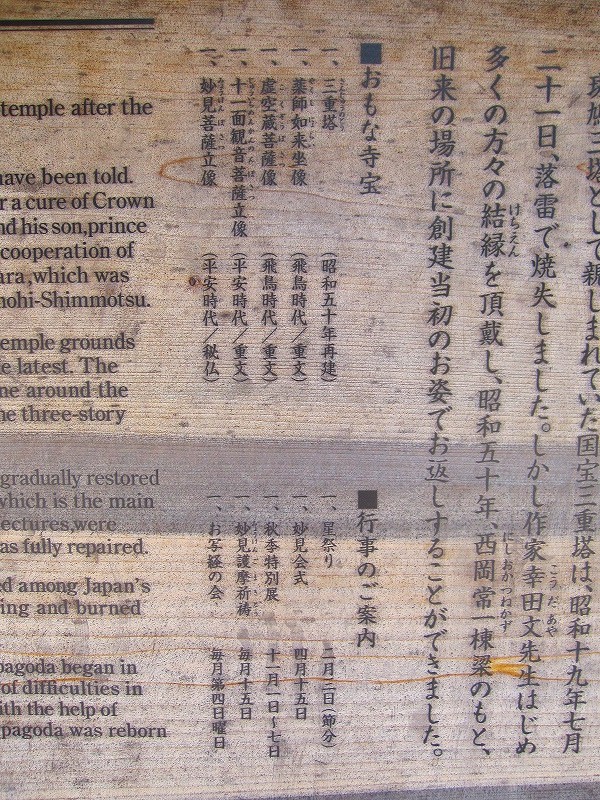 斑鳩三塔として親しまれていた国宝三重塔は、昭和十九年七月
二十一日、落雷で焼失しました。しかし作家幸田文先生はじめ
多くの方々の結縁を頂戴し、昭和五十年、西岡常一棟梁のもと、
旧来の場所に創建当初のお姿でお返しすることができました。
■おもな寺宝
一、三重塔 (昭和五十年再建)
一、薬師如来坐像 (飛鳥時代/重文)
一、虚空蔵菩薩像 (飛鳥時代/重文)
一、十一面観音菩薩立像 (平安時代/重文)
一、妙見菩薩立像 (平安時代/秘仏)
■行事のご案内
一、星祭り 二月三日(節分)
一、妙見会式 四月十五日
一、秋季特別展 十一月一日~七日
一、妙見護摩祈祷 毎月十五日
一、お写経の会 毎月第四日曜日
temple after the
have been told.
r a cure of Crown
nd his son,prince
cooperation of
ara,which was
nohi-Shimmotsu.
temple grounds
e latest. The
ne around the
he three-story
gradually restored
which is the main
ectures,were
as fully repaired.
ed among Japan's
ing and burned
pagoda began in
of difficulties in
ith the help of
pagoda was reborn